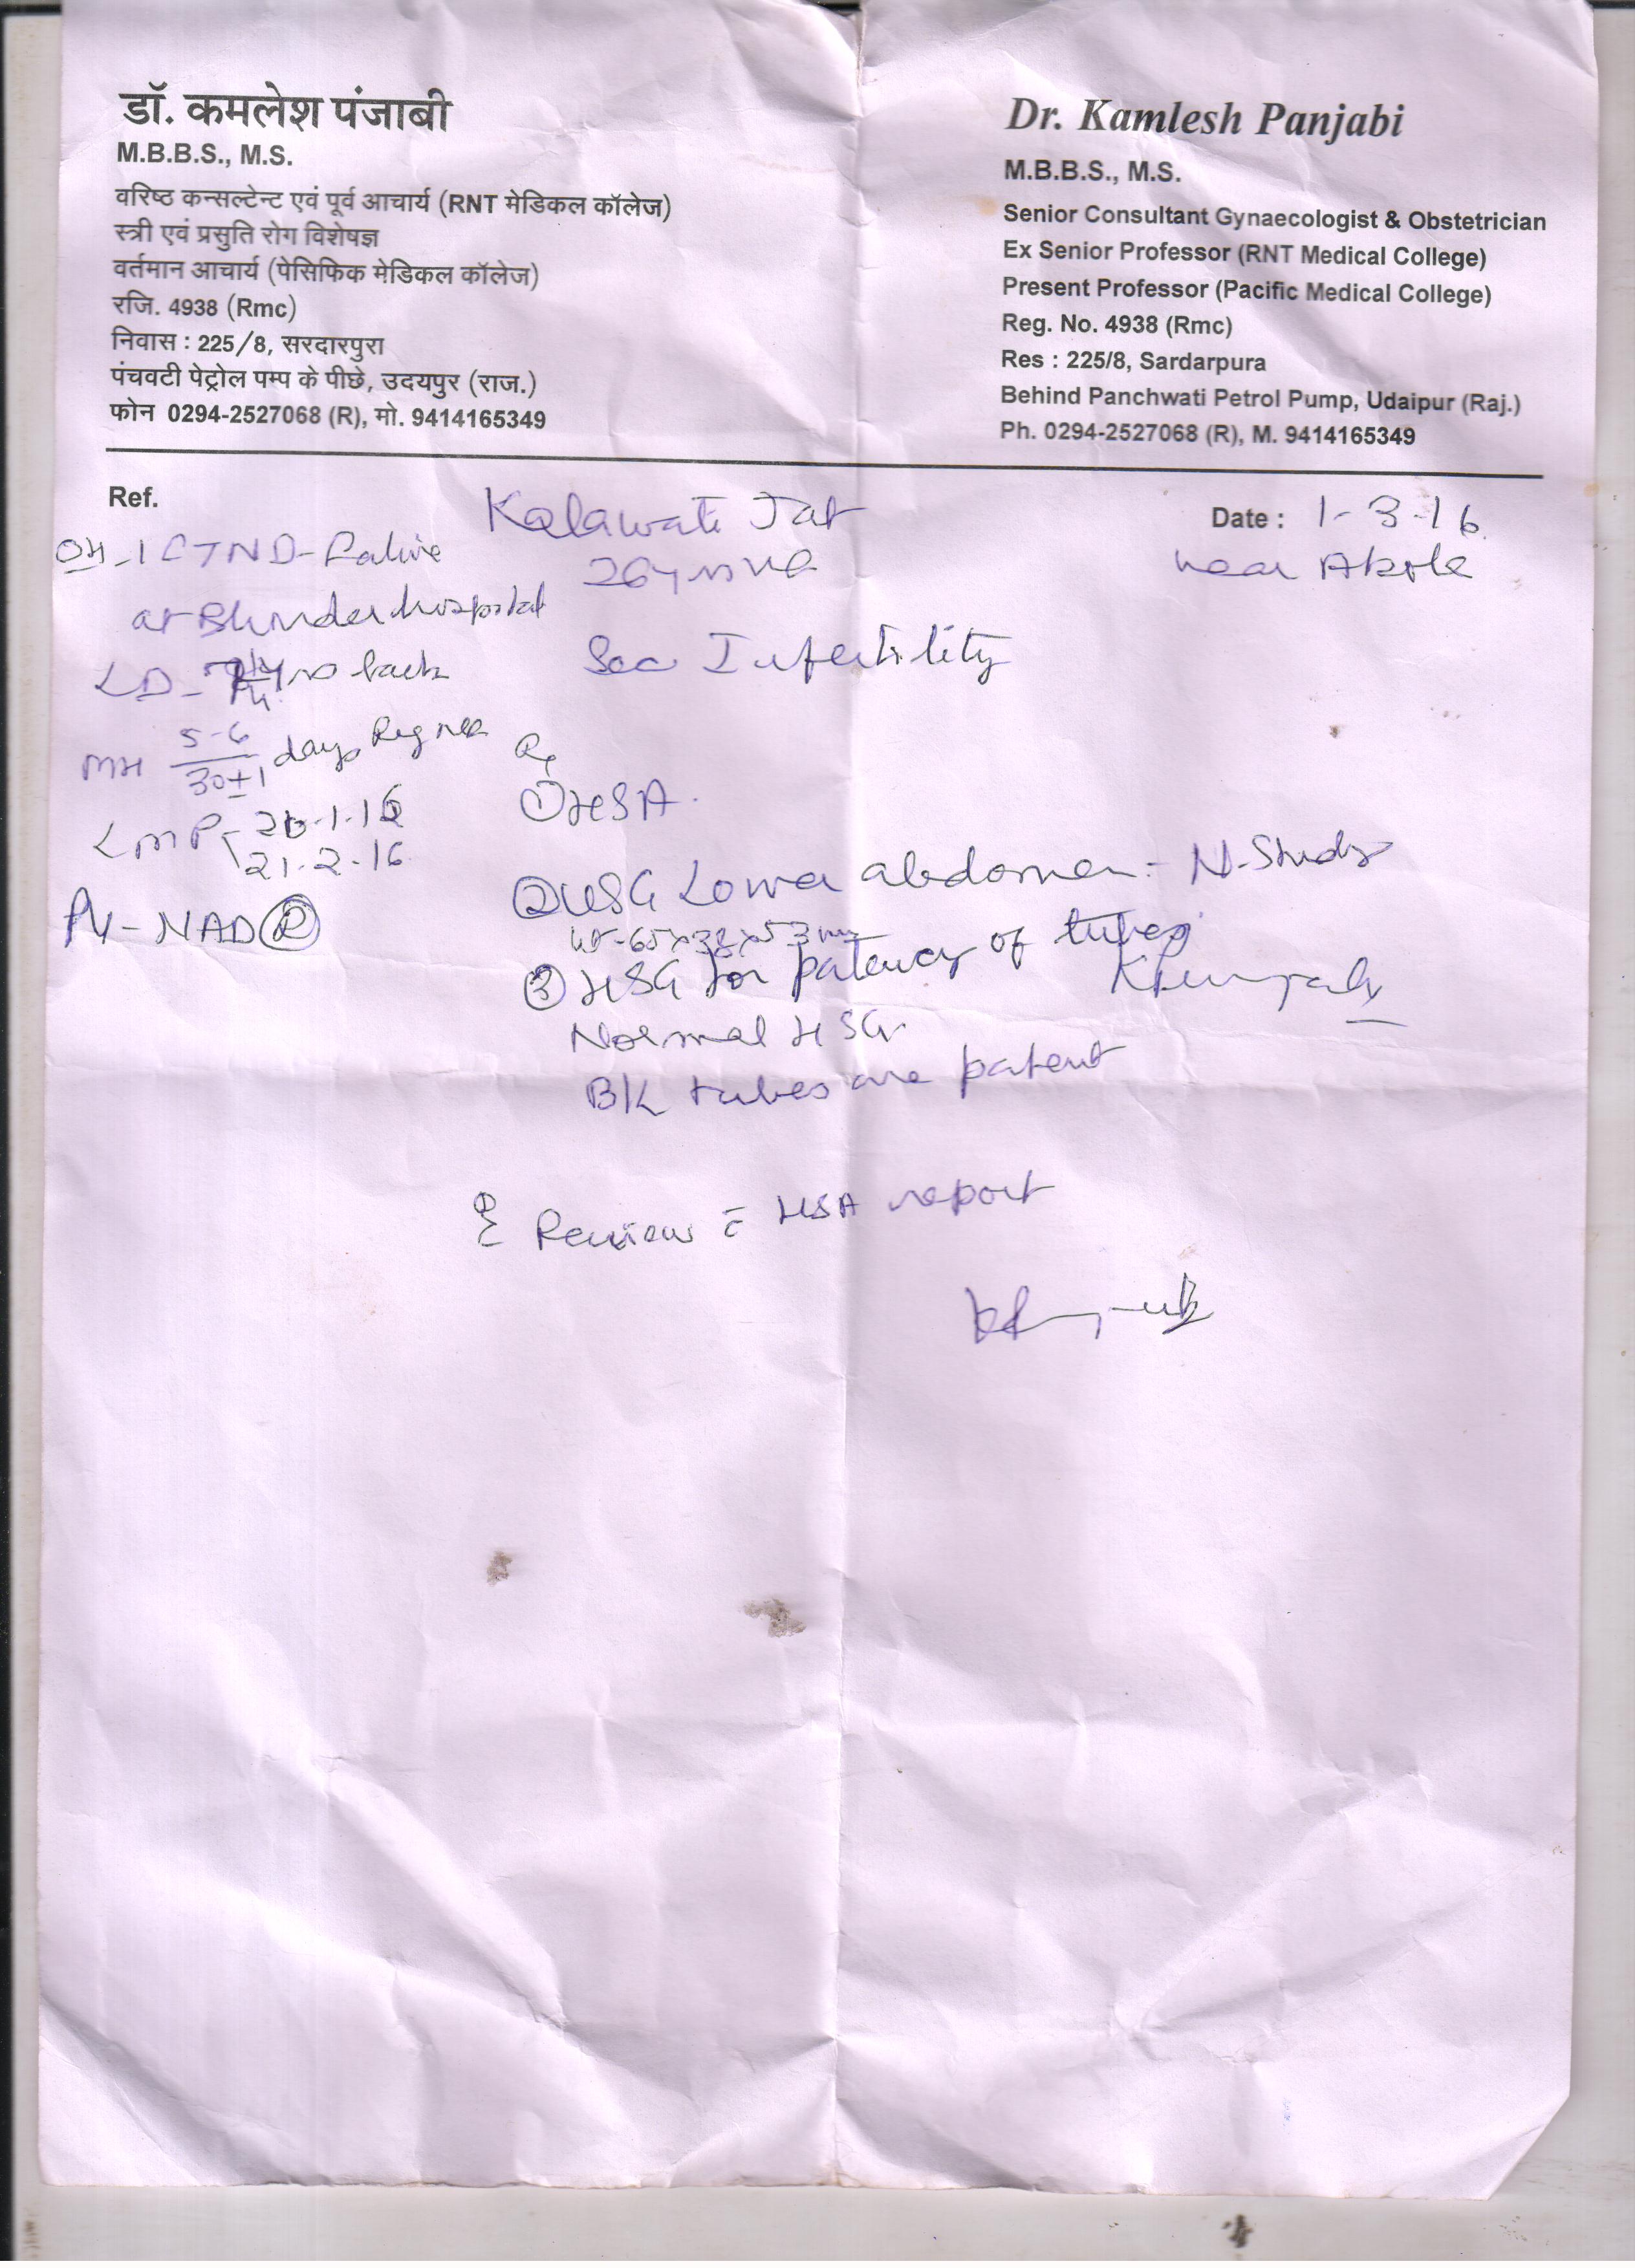 डॉ. कमलेश पंजाबी
M.B.B.S., M.S.
वरिष्ठ कन्सल्टेन्ट एवं पूर्व आचार्य (RNT मेडिकल कॉलेज)
स्त्री एवं प्रसुति रोग विशेषज्ञ
वर्तमान आचार्य (पेसिफिक मेडिकल कॉलेज)
रजि. 4938 (Rmc)
निवास : 225/8, सरदारपुरा
पंचवटी पेट्रोल पम्प के पीछे, उदयपुर (राज.)
फोन 0294-2527068 (R), मो. 9414165349
Dr. Kamlesh Panjabi
M.B.B.S., M.S.
Senior Consultant Gynaecologist & Obstetrician
Ex Senior Professor (RNT Medical College)
Present Professor (Pacific Medical College)
Reg. No. 4938 (Rmc)
Res : 225/8, Sardarpura
Behind Panchwati Petrol Pump, Udaipur (Raj.)
Ph. 0294-2527068 (R), M. 9414165349
Ref.
Kalawati Jat
Date : 1-3-16
26yrs
near Akola
OH-1 FTND-
at hospital
LD- back
Sec Infertility
MH 5-6/30±1 days Reg
LMP 21-2-16
PV-NAD
Rx
① HSA.
② USG Lower abdomen - N-Study
ut-65x38x53mm
③ HSG for patency of tubes
Normal HSG
B/L tubes are patent
Review c̄ HSA report